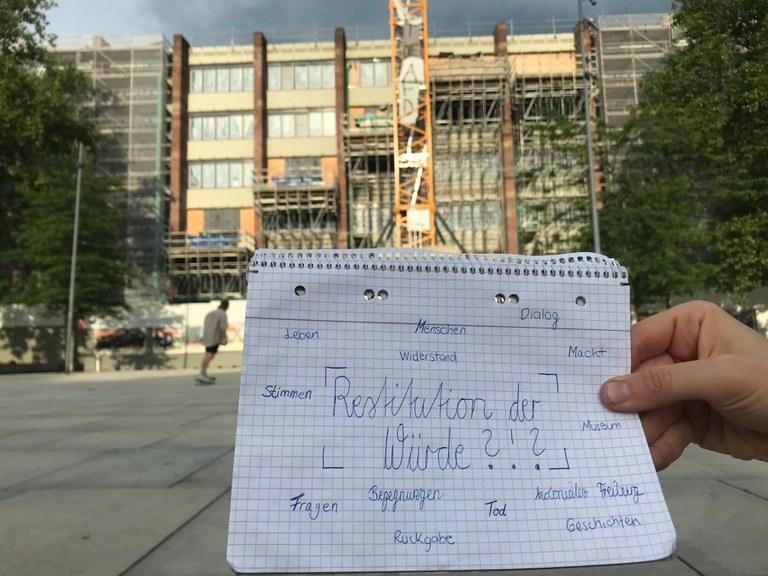 Dialog
Menschen
Leben
Widerstand
Macht
Stimmen
Restitution der
Würde ?!?
Museum
Begegnungen
koloniales Freiburg
Fragen
Tod
Geschichten
Rückgabe